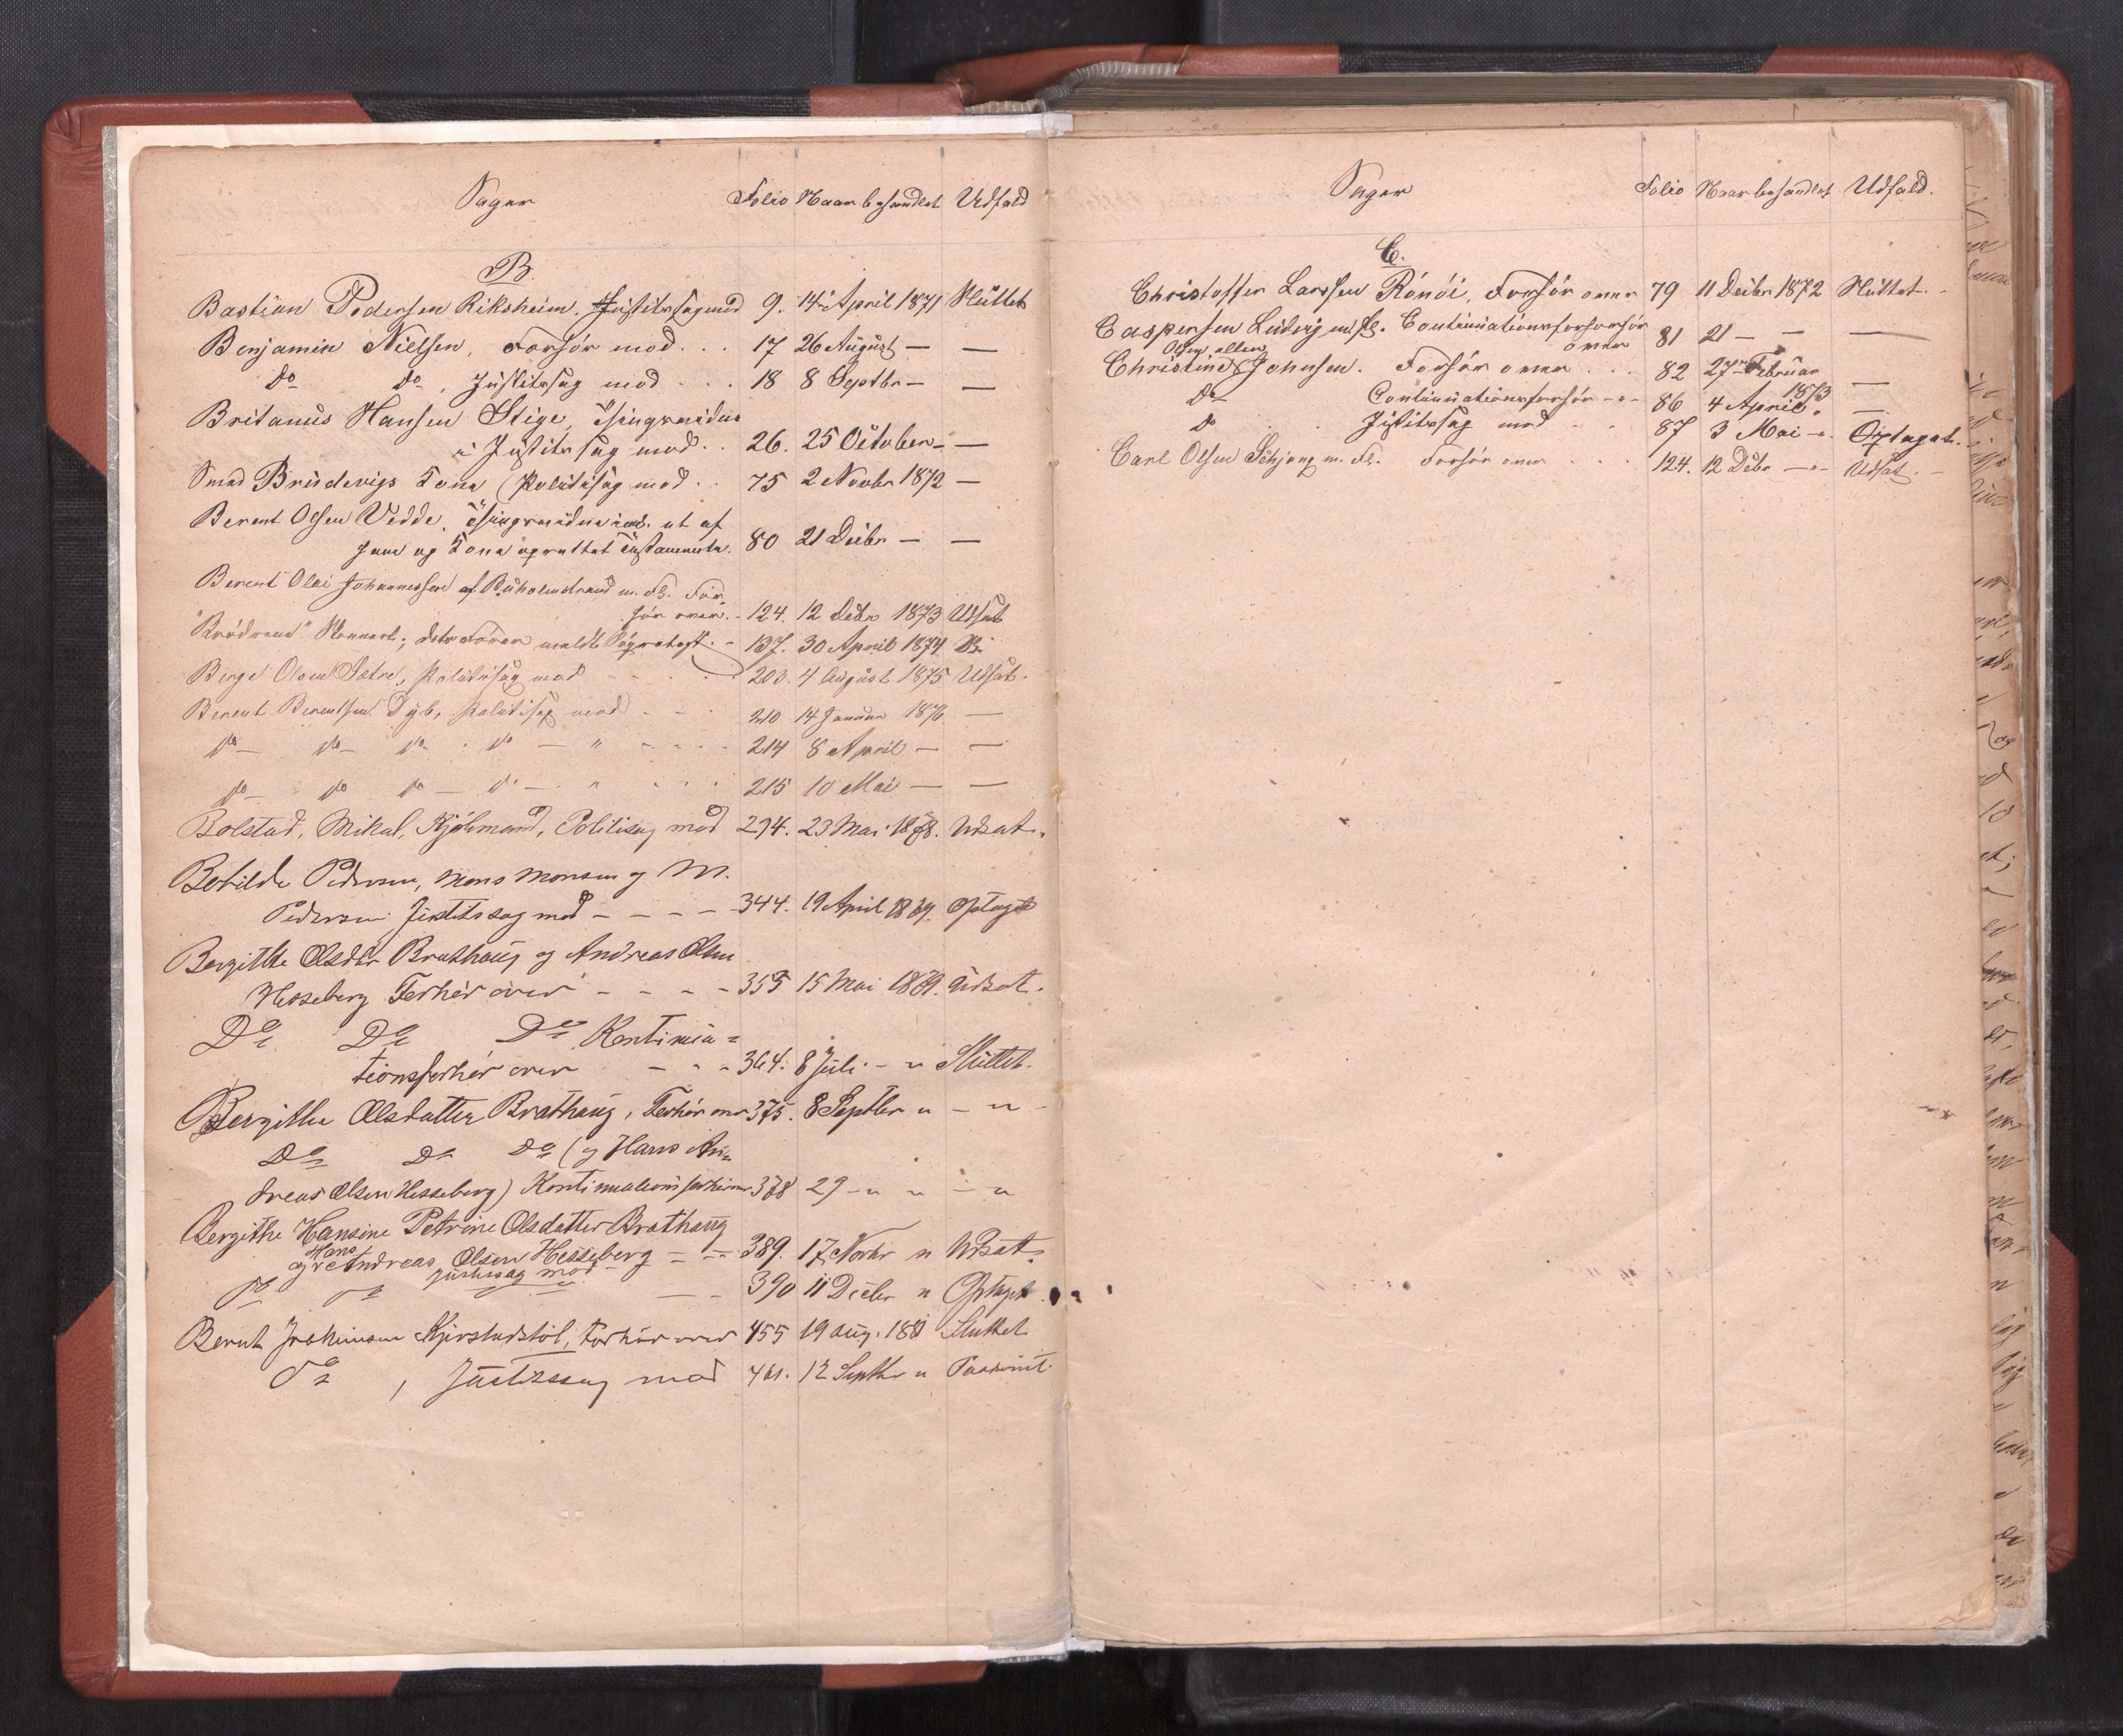 Sager Folio Naar behandlet Udfald
B.
Bastian Pedersen Riksheim. Justitssag mod 9. 14 April 1871 Sluttet
Benjamin Nielsen, Forhör mod . . . 17 26 August — —
Do Do, Justitssag mod . . . 18 8 Septbr — —
Britanus Hansen Stige,
i Justitssag mod . . 26. 25 October — —
Smed Brudevigs Kone (Politisag mod . . 75 2 Novbr 1872 —
Berent Olsen Vedde, et af
ham og Kone oprettet Testamente. 80 21 Decbr — —
Berent Olai Johannessen af Buholmstrand m. Fl. For-
hör over. - 124. 12 Decbr 1873 Udsat
"Brödrene" 137. 30 April 1874
Berge Olsen Sætre, Politisag mod . 203. 4 August 1875 Udsat.
Berent Berentsen Dyb, Politisag mod - - 210 14 Januar 1876 —
do — do — do . do — " - - - - 214 8 April — —
do — do do — do — " . . . 215 10 Mai — —
Bolstad, Mikal, Kjölmand, Politisag mod 294. 23 Mai 1878. Udsat.
Botilde Pedersen, Mons Monsen og M.
Pedersen Justitssag mod - - - - 344. 19 April 1879. Optaget
Bergitthe Olsdtr Brathaug og Andreas Olsen
Hesseberg Forhör over - - - - 355 15 Mai 1879. Udsat.
Do Do Do Kontinua=
tionsforhör over - - - 364. 8 Juli - " Sluttet.
Bergithe Olsdatter Brathaug, Forhör over 375. 8 Septbr " - "
Do Do Do (og Hans An=
dreas Olsen Hesseberg) Kontinuationsforhör over 378 29 - " " - "
Bergithe Hansine Petrine Olsdatter Brathaug
og Hans Andreas Olsen Hesseberg - - 389. 17 Novbr " Udsat.
Justitssag mod
Do Do — - 390 11 Decbr " Optaget.
Bernt Joakimsen Kjerstadstöl, Forhör over 455 19 Aug. 1881 Sluttet
Do, Justitssag mod 461. 12 Septbr "
Sager Folio Naar behandlet Udfald.
C.
Christoffer Larssen Rönöi, Forhör over 79 11 Decbr 1872 Sluttet.
Caspersen Ludvig m. fl. Continuationsforhör
over 81 21 — — —
Olsen eller
Christine Johnsen. Forhör over . . . 82 27 Februar
1873 —
Do Continuationsforhör -"- 86 4 April " —
Do Justitssag mod - - 87 3 Mai -"- Optaget.
Carl Olsen Schjong m. Fl. Forhör over . . . 124. 12 Decbr -"- Udsat. -